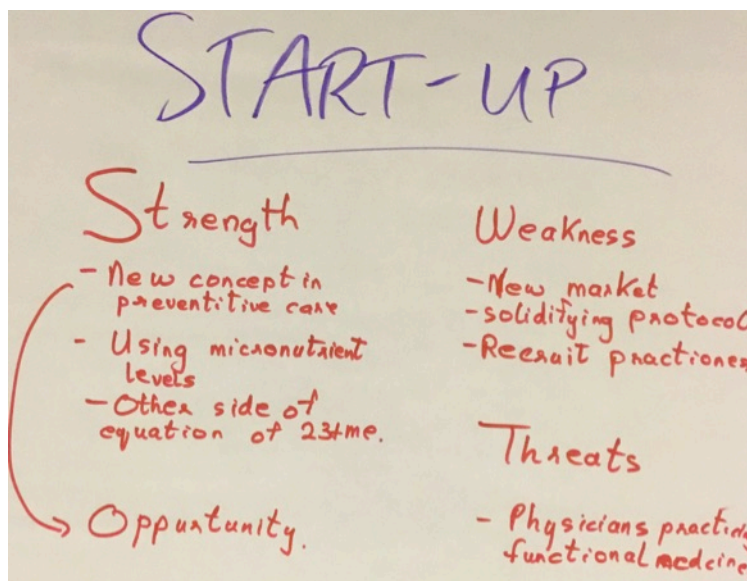 START-UP
Strength
- New concept in
preventitive care
- Using micronutrient
levels
- Other side of
equation of 23+me.
Oppurtunity.
Weakness
- New market
- solidifying protocol
- Recruit practioner
Threats
- Physicians
functional medcine